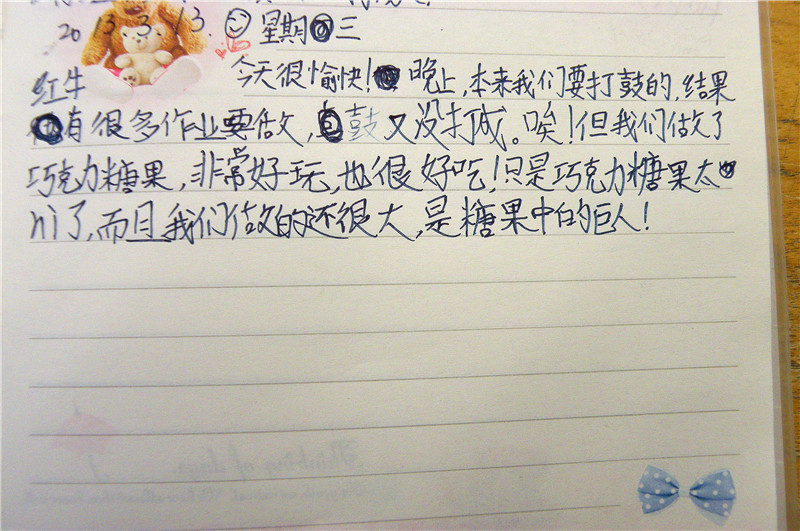 2013.3.13. 星期三
红牛 今天很愉快! 晚上,本来我们要打鼓的,结果
有很多作业要做,鼓又没打成。唉!但我们做了
巧克力糖果,非常好玩,也很好吃!只是巧克力糖果太
ni了,而且我们做的还很大,是糖果中的巨人!
Thinking of days